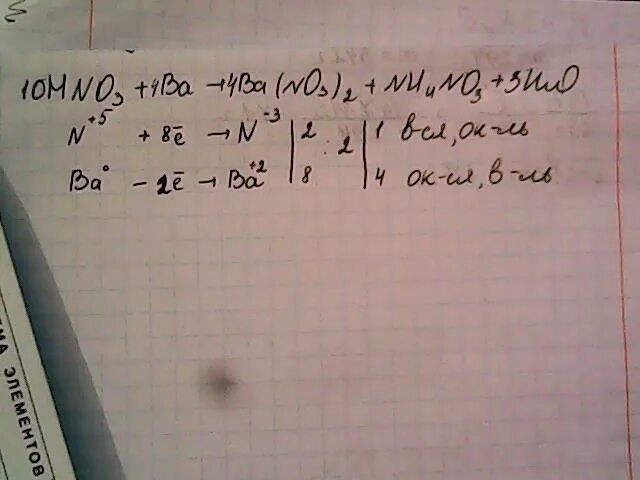 10HNO₃ + 4Ba → 4Ba(NO₃)₂ + NH₄NO₃ + 3H₂O
N⁺⁵ + 8ē → N⁻³ | 2 : 2 | 1 в-ся, ок-ль
Ba⁰ - 2ē → Ba⁺² | 8 | 4 ок-ся, в-ль
ЭЛЕМЕНТОВ